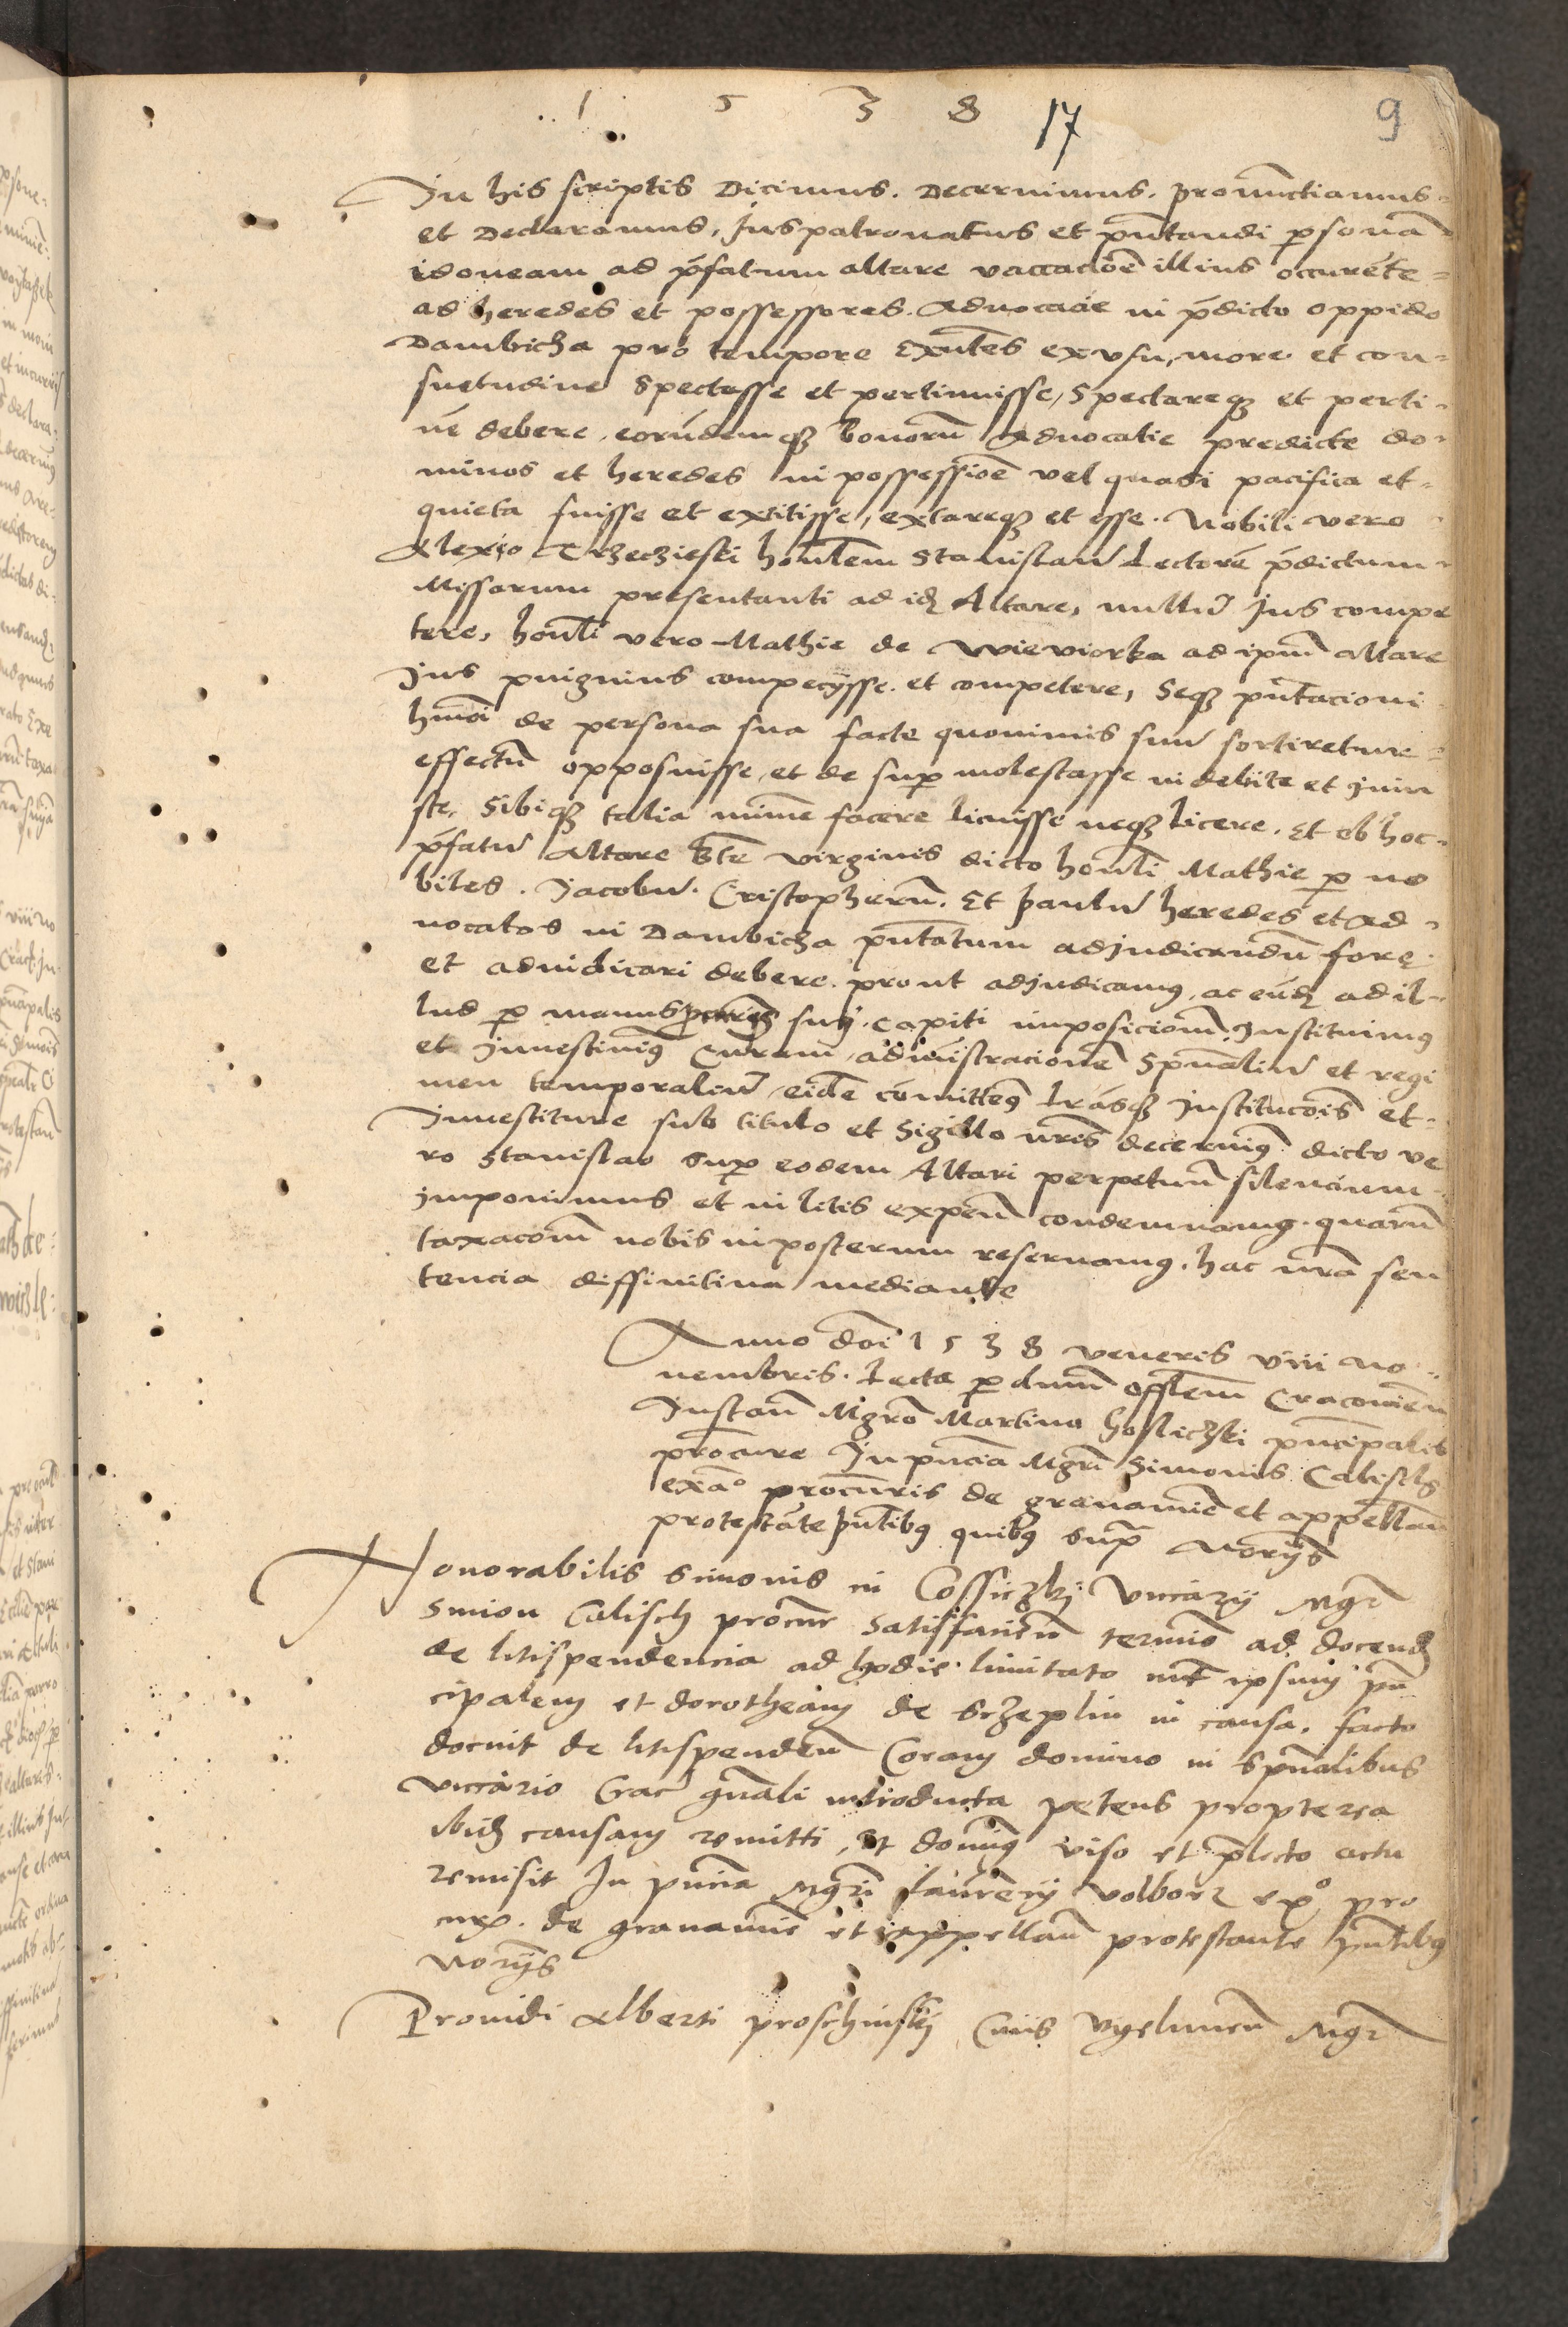 1 5 3 8 17 9
In his scriptis Dicimus. Decernimus. pronūctiamus
et Declaramus, Juspatronatus et pn̄tandi psonā
idoneam ad pfatum altare vaccacioē illius occurēte
ad heredes et possessores. Advocacie in pdicto oppido
Dambicza pro tempore Exn̄tes ex vsu, more et con-
suetudine Spectasse et pertinuisse, Spectareqȝ et perti-
nē debere, eorūdemqȝ bonorū Advocatie predicte do-
minos et heredes in possessioē vel quasi pacifica et
quieta fuisse et extitisse, extareqȝ et esse. Nobili vero
Alexio Trzeczieski hon̄lem Stanislaū Lectorē pdictum
Missarum presentanti ad idȝ Altare, nullū Jus compe
tere, hon̄li vero Mathie de Wieviorka ad ipm̄ altare
Jus pinguius compecijsse et competere, Seqȝ pn̄tacioni
hmōi de persona sua facte quominis suū sortiretur
effectū opposuisse, et de sup molestasse indebite et iniu
ste, Sibiqȝ talia mīme facere licuisse neqȝ licere. Et ob hoc
pfatū Altare Bte virginis dicto hon̄li Mathie p no
biles. Jacobū. Cristopherū. Et Paulū heredes et ad
vocatos in Dambicza pn̄tatum adjudicandū fore
et adiudicari debere. prout adjudicamꝰ, ac eūdȝ ad il-
lud p manus suij capiti imposicionē Instituimꝰ
et Jnvestimꝰ Curam, admīstracionē Spūaliū et regi
men temporaliū, eidē cōmittemꝰ lrāsqȝ Institucōis et
Jnvestiture sub titulo et Sigillo nr̄is decernimꝰ dicto ve
ro Stanislao Sup eodem Altari perpetuū silencium
imponimus et in litis expen̄ condemnamꝰ. quarū
taxacōm nobis inposterum reservamꝰ, hac nr̄a sen
tencia diffinitiva mediante
Anno dōi 1538 veneris viii No
vembris. Lecta p dnm̄ offlem̄ Cracovien̄
Instan̄ Mgro Martino Goslicȝki prīcipalis
procure In pn̄cia Mgri Simonis Calisch
exā procuris de gravamīe et appellan̄
protestāte pn̄tibꝰ quibꝰ supra Norijs
Honorabilis Simonis in Cossiczkj Vicarij Mgr
Simon Calisch procur Satisfacien̄ termīo ad docendȝ
de litispendencia ad hodie limitato int ipsum prīn
cipalem et dorotheam de Srzeplin in causa. facto
docuit de litispenden̄ Coram domino in Spūalibus
vicario Crac gn̄ali introducta petens propterea
ibidȝ causam remitti, Et domīꝰ viso et plecto actu
remisit In pn̄cia Mgri Laurencij Volborz exꝰ pro
cur. de gravamīe et appellan̄ protestante pn̄tibꝰ
Norijs
Providi Alberti proschinskj Civis Vyelicien̄ Mgr